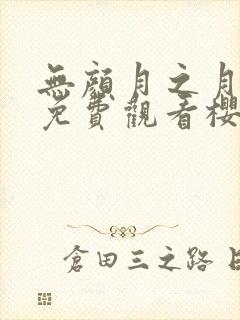 無顏月之月
免費觀看櫻
倉田三之路